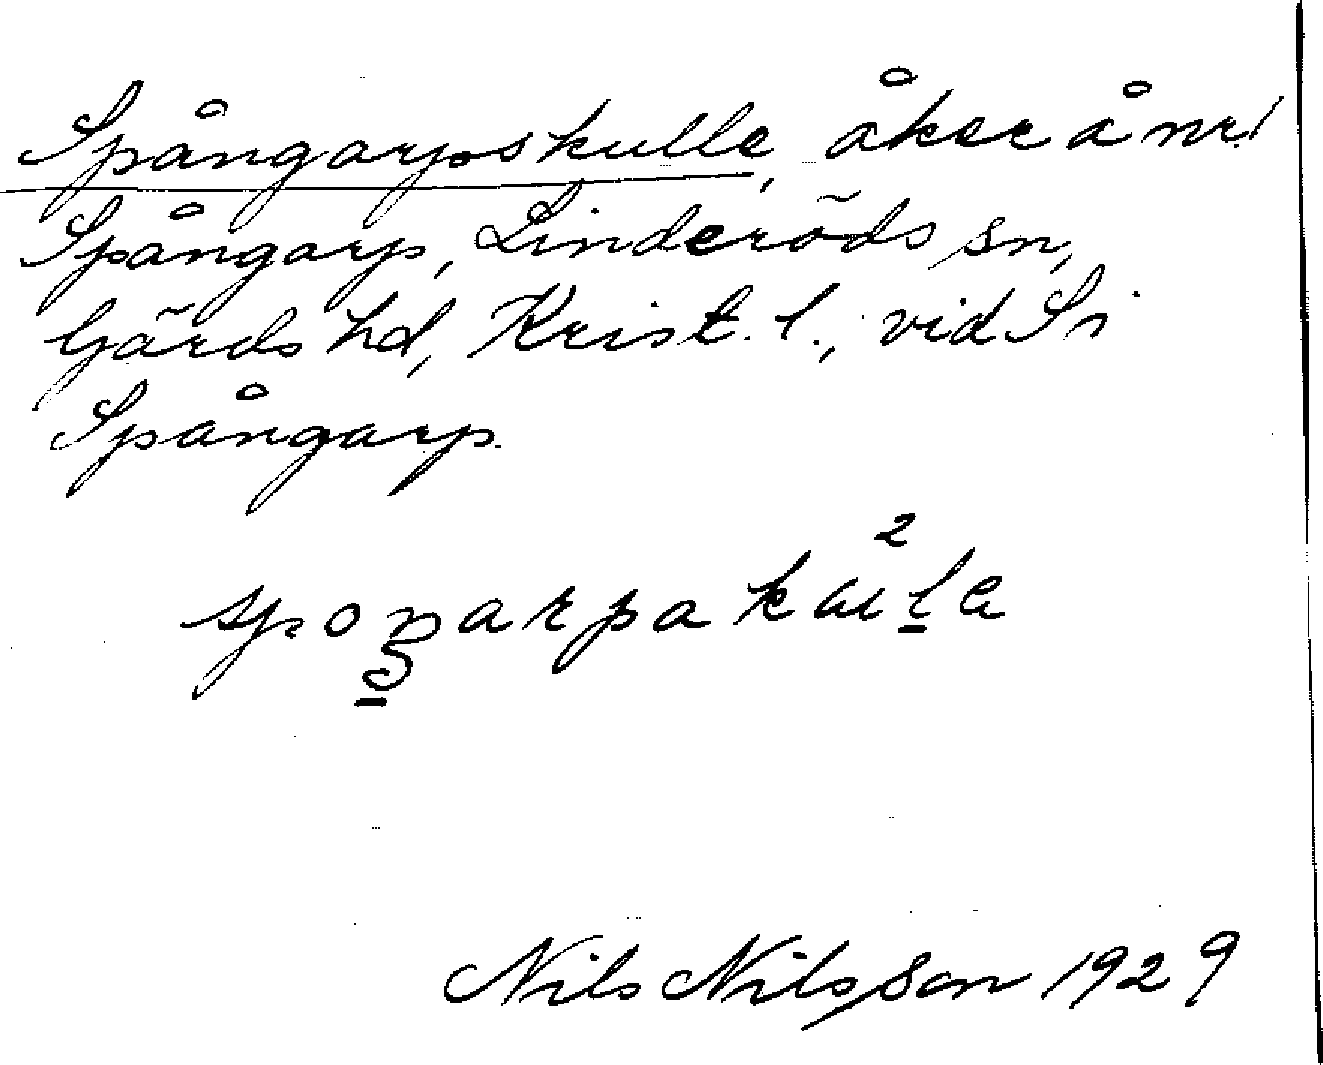 Spångarpskulle, åker å nr 1
Spångarp, Linderöds sn,
Gärds hd, Krist. l., vid Si
Spångarp.
Nils Nilsson 1929